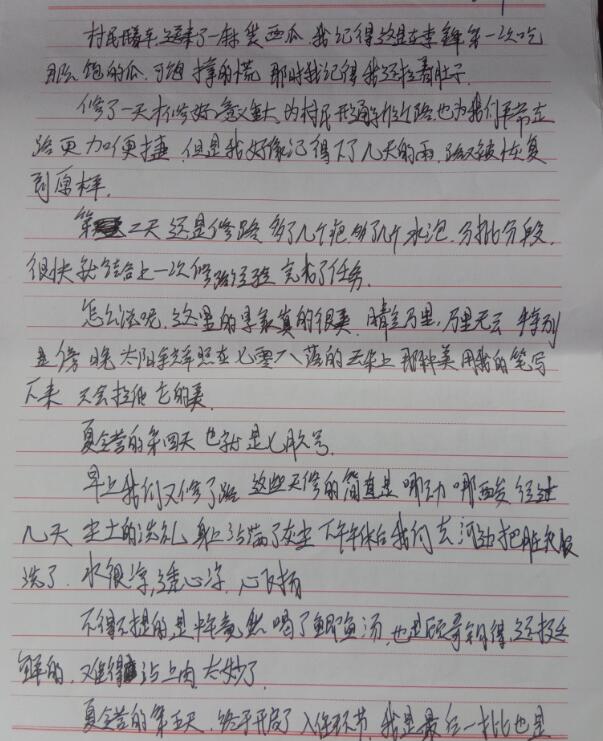 村民腾车送来了一麻袋西瓜,我记得这是在李锋第一次吃
那么饱的瓜,可谓撑的慌,那时我记得我还拉着肚子.
修了一天桥修好意义重大,为村民开通了推行路,也为我们平常走
路更加便捷,但是我好像记得下了几天的雨,路又被恢复
到原样.
第二天还是修路,多了几个疤,多了几个水泡,分批分段,
很快就结合上一次修路经验完成了任务.
怎么说呢,这里的景象真的很美,晴空万里,万里无云,特别
是傍晚,太阳斜照在七零八落的云朵上,那种美,用我的笔写
下来,只会拉低它的美.
夏令营的第四天,也就是七月九号.
早上我们又修了路,这些天修的简直是哪边哪面,经过
几天尘土的洗礼,身上沾满了灰尘,下午午休后我们去河边把脏衣服
洗了.水很凉,透心凉,心飞扬
不得不提的是,中午竟然喝了鲫鱼汤,也是硕哥钓得,还挺
鲜的,难得沾上肉,太妙了.
夏令营的第五天,终于开启了入住环节,我是最后一批也是